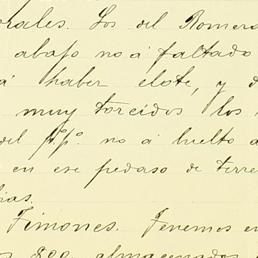 hales. Los del Romero
abajo no á faltado
á haber elote, y d
muy torcidos los
del ppo. no á buelto a
en ese pedaso de terre
ias.
Timones. Tenemos en
800 almacenados